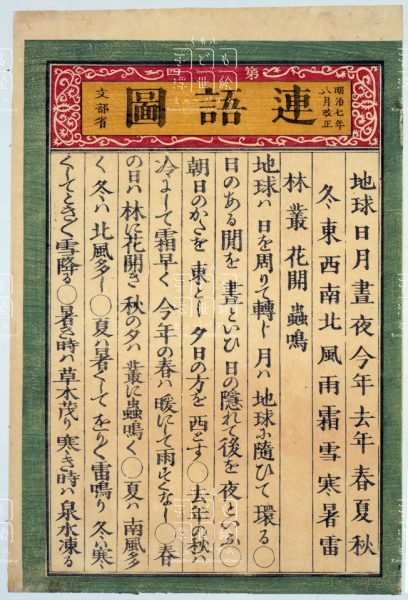 第四
明治七年
八月改正
連語圖
文部省
地球日月晝夜今年去年春夏秋
冬東西南北風雨霜雪寒暑雷
林叢花開蟲鳴
地球ハ日を周りて轉じ月ハ地球に隨ひて環る〇
日のある間を晝といひ日の隠れて後を夜といふ〇
朝日のかたを東とし夕日の方を西とす〇去年の秋ハ
冷にして霜早く今年の春ハ暖にて雨すくなし〇春
の日ハ林に花開き秋の夕ハ叢に蟲鳴く〇夏ハ南風多
く冬ハ北風多し〇夏ハ暑くてをり〱雷鳴り冬ハ寒
くしてとき〲雪降る〇暑き時ハ草木茂り寒き時ハ泉水凍る